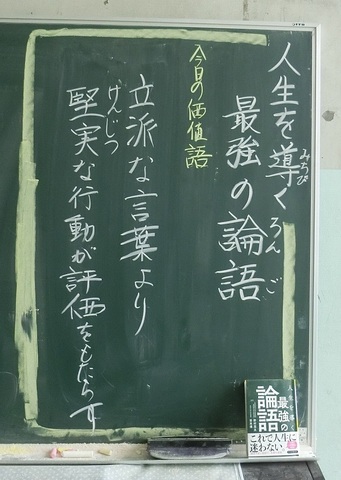 人生を導く
みちび
最強の論語
ろんご
今日の価値語
立派な言葉より
堅実な行動が評価をもたらす
げんじつ
人生を導く
最強の
論語
これで人生に
迷わない。